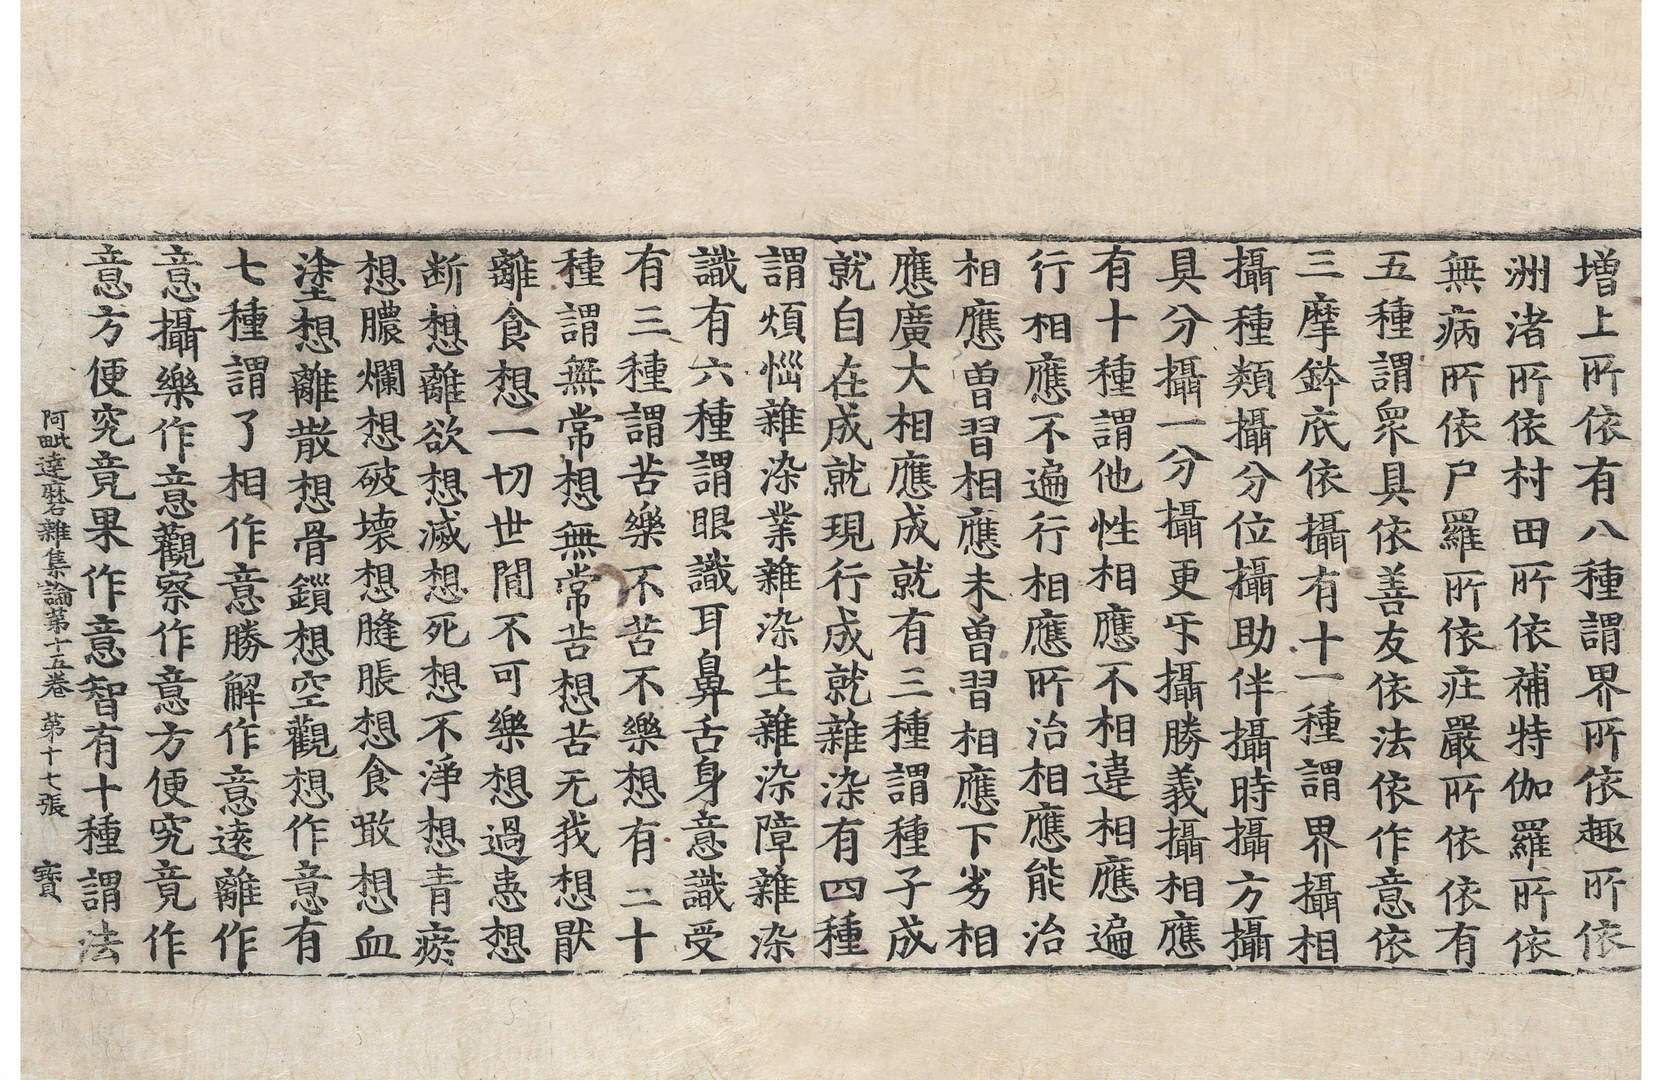 增上所依有八種謂界所依趣所依
洲渚所依村田所依補特伽羅所依
無病所依尸羅所依莊嚴所依依有
五種謂衆具依善友依法依作意依
三摩鉢底依攝有十一種謂界攝相
攝種類攝分位攝助伴攝時攝方攝
具分攝一分攝更㸦攝勝義攝相應
有十種謂他性相應不相違相應遍
行相應不遍行相應所治相應能治
相應曾習相應未曾習相應下劣相
應廣大相應成就有三種謂種子成
就自在成就現行成就雜染有四種
謂煩惱雜染業雜染生雜染障雜染
識有六種謂眼識耳鼻舌身意識受
有三種謂苦樂不苦不樂想有二十
種謂無常想無常苦想苦无我想厭
離食想一切世間不可樂想過患想
断想離欲想滅想死想不淨想青瘀
想膿爛想破壞想膖脹想食噉想血
塗想離散想骨鎖想空觀想作意有
七種謂了相作意勝解作意遠離作
意攝樂作意觀察作意方便究竟作
意方便究竟果作意智有十種謂法
阿毗達磨雜集論苐十五卷 苐十七張 寳